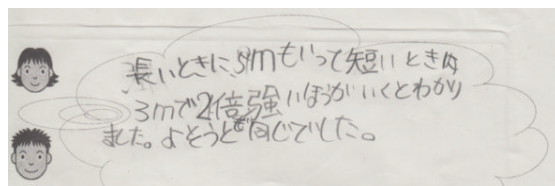 長いときに8mもいって短いときは
3mで2倍強いほうがいくとわかり
ました。よそうどおりと同じでした。